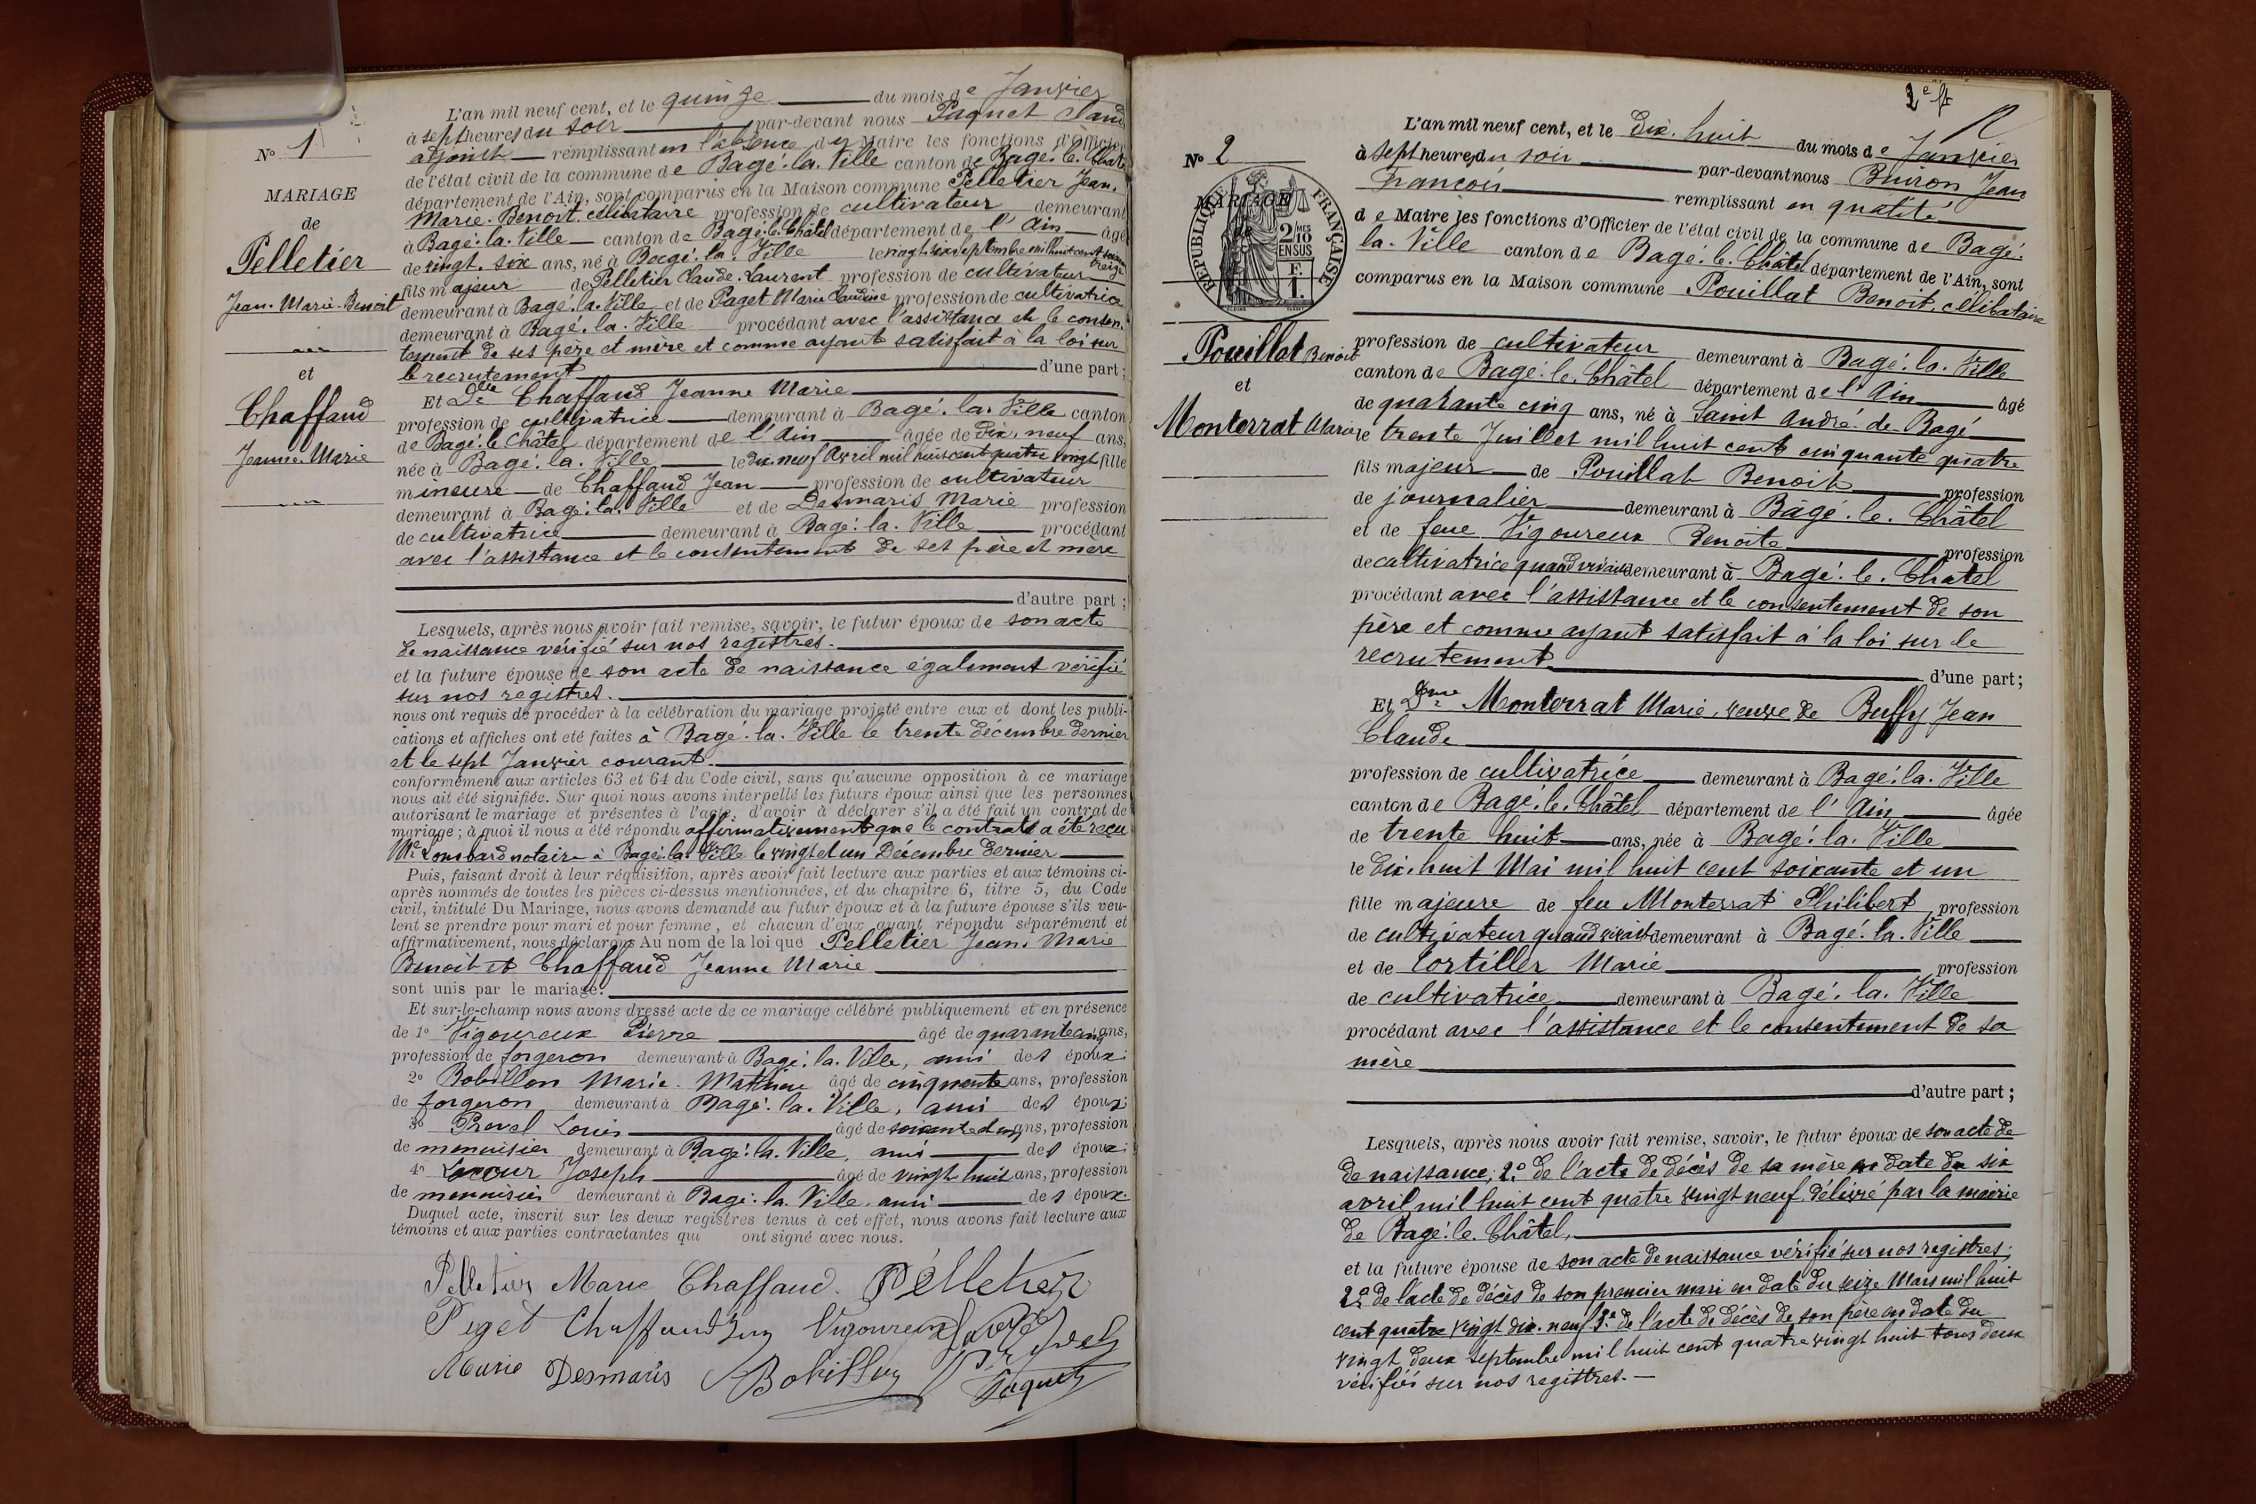 No 1
MARIAGE
de
Pelletier
Jean-Marie-Benoit
et
Chaffaud
Jeanne-Marie
L'an mil neuf cent, et le quinze du mois de Janvier
à sept heures du soir par-devant nous Paquet Claude
adjoint remplissant en l'absence du Maire les fonctions d'Officier
de l'état civil de la commune de Bagé-la-Ville canton de Bagé-le-Châtel
département de l'Ain, sont comparus en la Maison commune Pelletier Jean-
Marie-Benoit, célibataire profession de cultivateur demeurant
à Bagé-la-Ville canton de Bagé-le-Châtel département de l'Ain âgé
de vingt-six ans, né à Bagé-la-Ville le vingt six septembre mil huit cent soixante treize
fils majeur de Pelletier Claude-Laurent profession de cultivateur
demeurant à Bagé-la-Ville et de Paget Marie Claudine profession de cultivatrice
demeurant à Bagé-la-Ville procédant avec l'assistance et le consen-
tement de ses père et mère et comme ayant satisfait à la loi sur
le recrutement d'une part;
Et Dlle Chaffaud Jeanne Marie
profession de cultivatrice demeurant à Bagé-la-Ville canton
de Bagé-le-Châtel département de l'Ain âgée de dix-neuf ans,
née à Bagé-la-Ville le dix-neuf Avril mil huit cent quatre vingt fille
mineure de Chaffaud Jean profession de cultivateur
demeurant à Bagé-la-Ville et de Desmaris Marie profession
de cultivatrice demeurant à Bagé-la-Ville procédant
avec l'assistance et le consentement de ses père et mère
d'autre part;
Lesquels, après nous avoir fait remise, savoir, le futur époux de son acte
de naissance vérifié sur nos registres.
et la future épouse de son acte de naissance également vérifié
sur nos registres.
nous ont requis de procéder à la célébration du mariage projeté entre eux et dont les publi-
cations et affiches ont été faites à Bagé-la-Ville le trente décembre dernier
et le sept Janvier courant.
conformément aux articles 63 et 64 du Code civil, sans qu'aucune opposition à ce mariage
nous ait été signifiée. Sur quoi nous avons interpellé les futurs époux ainsi que les personnes
autorisant le mariage et présentes à l'acte, d'avoir à déclarer s'il a été fait un contrat de
mariage; à quoi il nous a été répondu affirmativement que le contrat a été reçu
Me Lombard notaire à Bagé-la-Ville le vingt et un Décembre dernier
Puis, faisant droit à leur réquisition, après avoir fait lecture aux parties et aux témoins ci-
après nommés de toutes les pièces ci-dessus mentionnées, et du chapitre 6, titre 5, du Code
civil, intitulé Du Mariage, nous avons demandé au futur époux et à la future épouse s'ils veu-
lent se prendre pour mari et pour femme, et chacun d'eux ayant répondu séparément et
affirmativement, nous déclarons Au nom de la loi que Pelletier Jean-Marie
Benoit et Chaffaud Jeanne Marie
sont unis par le mariage.
Et sur-le-champ nous avons dressé acte de ce mariage célébré publiquement et en présence
de 1o Vigoureux Pierre âgé de quarante cinq ans,
profession de forgeron demeurant à Bagé-la-Ville, ami des époux;
2o Bobillon Marie-Mathieu âgé de cinquante ans, profession
de forgeron demeurant à Bagé-la-Ville, ami des époux;
3o Prevel Louis âgé de soixante et un ans, profession
de menuisier demeurant à Bagé-la-Ville, ami des époux;
4o Joseph âgé de vingt-huit ans, profession
de menuisier demeurant à Bagé-la-Ville, ami des époux.
Duquel acte, inscrit sur les deux registres tenus à cet effet, nous avons fait lecture aux
témoins et aux parties contractantes qui ont signé avec nous.
Pelletier Marie Chaffaud. Pélletier
Piget Chaffaud Vigoureux
Marie Desmaris Bobillon Paquet
2e ft
No 2
MARIAGE
RÉPUBLIQUE FRANÇAISE
2 MES
10
EN SUS
F.
1.
Pouillat Benoit
et
Monterrat Marie
L'an mil neuf cent, et le dix-huit du mois de Janvier
à sept heures du soir par-devant nous Buiron Jean
François remplissant en qualité
de Maire les fonctions d'Officier de l'état civil de la commune de Bagé-
la-Ville canton de Bagé-le-Châtel département de l'Ain, sont
comparus en la Maison commune Pouillat Benoit, célibataire
profession de cultivateur demeurant à Bagé-la-Ville
canton de Bagé-le-Châtel département de l'Ain âgé
de quarante cinq ans, né à Saint André-de-Bagé
le trente Juillet mil huit cent cinquante quatre
fils majeur de Pouillat Benoit profession
de journalier demeurant à Bâgé-le-Châtel
et de feue Vigoureux Benoite profession
de cultivatrice quand vivait demeurant à Bagé-le-Chatel
procédant avec l'assistance et le consentement de son
père et comme ayant satisfait à la loi sur le
recrutement d'une part;
Et Dme Monterrat Marie, veuve de Buffy Jean
Claude
profession de cultivatrice demeurant à Bagé-la-Ville
canton de Bagé-le-Châtel département de l'Ain âgée
de trente huit ans, née à Bagé-la-Ville
le dix-huit Mai mil huit cent soixante et un
fille majeure de feu Monterrat Philibert profession
de cultivateur quand vivait demeurant à Bagé-la-Ville
et de Cortiller Marie profession
de cultivatrice demeurant à Bagé-la-Ville
procédant avec l'assistance et le consentement de sa
mère
d'autre part;
Lesquels, après nous avoir fait remise, savoir, le futur époux de son acte de
de naissance; 2o de l'acte de décès de sa mère en date du six
avril mil huit cent quatre vingt neuf délivré par la mairie
de Bagé-le-Châtel,
et la future épouse de son acte de naissance vérifié sur nos registres;
2o de l'acte de décès de son premier mari en date du seize Mars mil huit
cent quatre vingt dix-neuf 3o de l'acte de décès de son père en date du
vingt deux septembre mil huit cent quatre vingt huit tous deux
vérifiés sur nos registres.